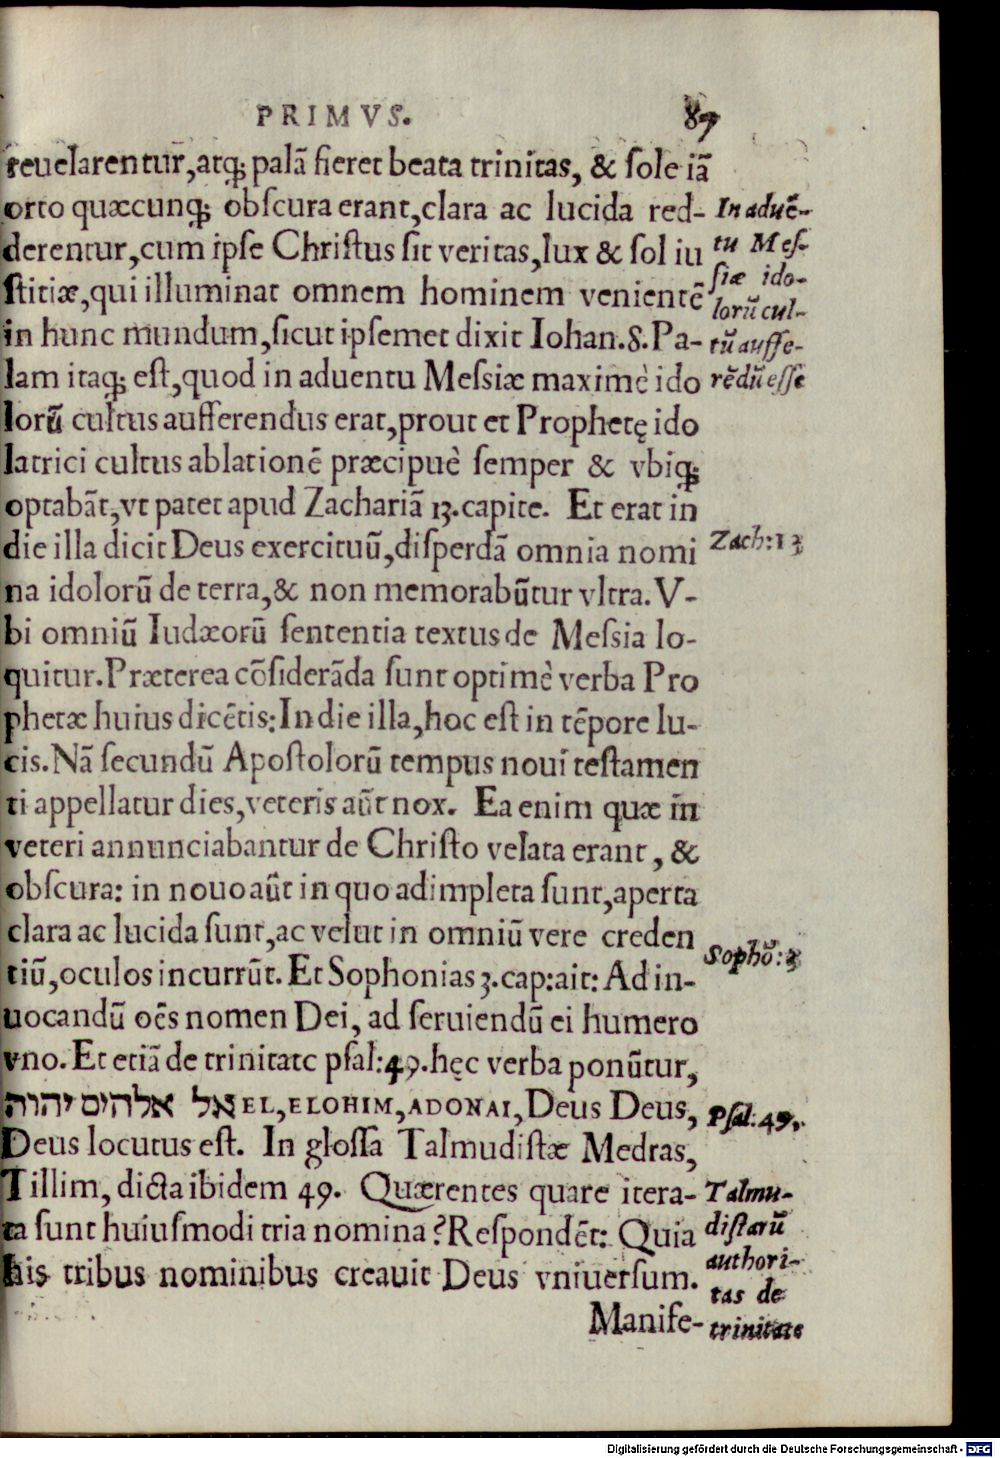 PRIMVS. 87
reuelarentur, atq; palã fieret beata trinitas, & ſole iã
orto quæcunq; obſcura erant, clara ac lucida red-
derentur, cum ipſe Chriſtus ſit veritas, lux & ſol iu
ſtitiæ, qui illuminat omnem hominem venientẽ
in hunc mundum, ſicut ipſemet dixit Iohan.8. Pa-
lam itaq; eſt, quod in aduentu Meſsiæ maximè ido
lorũ cultus aufferendus erat, prout et Prophetę ido
latrici cultus ablationẽ præcipuè ſemper & vbiq;
optabãt, vt patet apud Zachariã 13. capite. Et erat in
die illa dicit Deus exercituũ, diſperdã omnia nomi
na idolorũ de terra, & non memorabũtur vltra. V-
bi omniũ Iudæorũ ſententia textus de Meſsia lo-
quitur. Præterea cõſiderãda ſunt optimè verba Pro
phetæ huius dicẽtis: In die illa, hoc eſt in tẽpore lu-
cis. Nã ſecundũ Apoſtolorũ tempus noui teſtamen
ti appellatur dies, veteris aũt nox. Ea enim quæ in
veteri annunciabantur de Chriſto velata erant, &
obſcura: in nouo aũt in quo adimpleta ſunt, aperta
clara ac lucida ſunt, ac velut in omniũ vere creden
tiũ, oculos incurrũt. Et Sophonias 3. cap: ait: Ad in-
uocandũ oẽs nomen Dei, ad ſeruiendũ ei humero
vno. Et etiã de trinitate pſal: 49. hęc verba ponũtur,
אל אלהים יהוה EL, ELOHIM, ADONAI, Deus Deus,
Deus locutus eſt. In gloſſa Talmudiſtæ Medras,
Tillim, dicta ibidem 49. Quærentes quare itera-
ta ſunt huiuſmodi tria nomina? Reſpondẽt: Quia
his tribus nominibus creauit Deus vniuerſum.
Manife-
In aduẽ-
tu Meſ-
ſiæ ido-
lorũ cul-
tũ auffe-
rẽdũ eſſe
Zach: 13
Sophõ: 3
Pſal: 49.
Talmu-
diſtarũ
authori-
tas de
trinitate
Digitalisierung gefördert durch die Deutsche Forschungsgemeinschaft - DFG